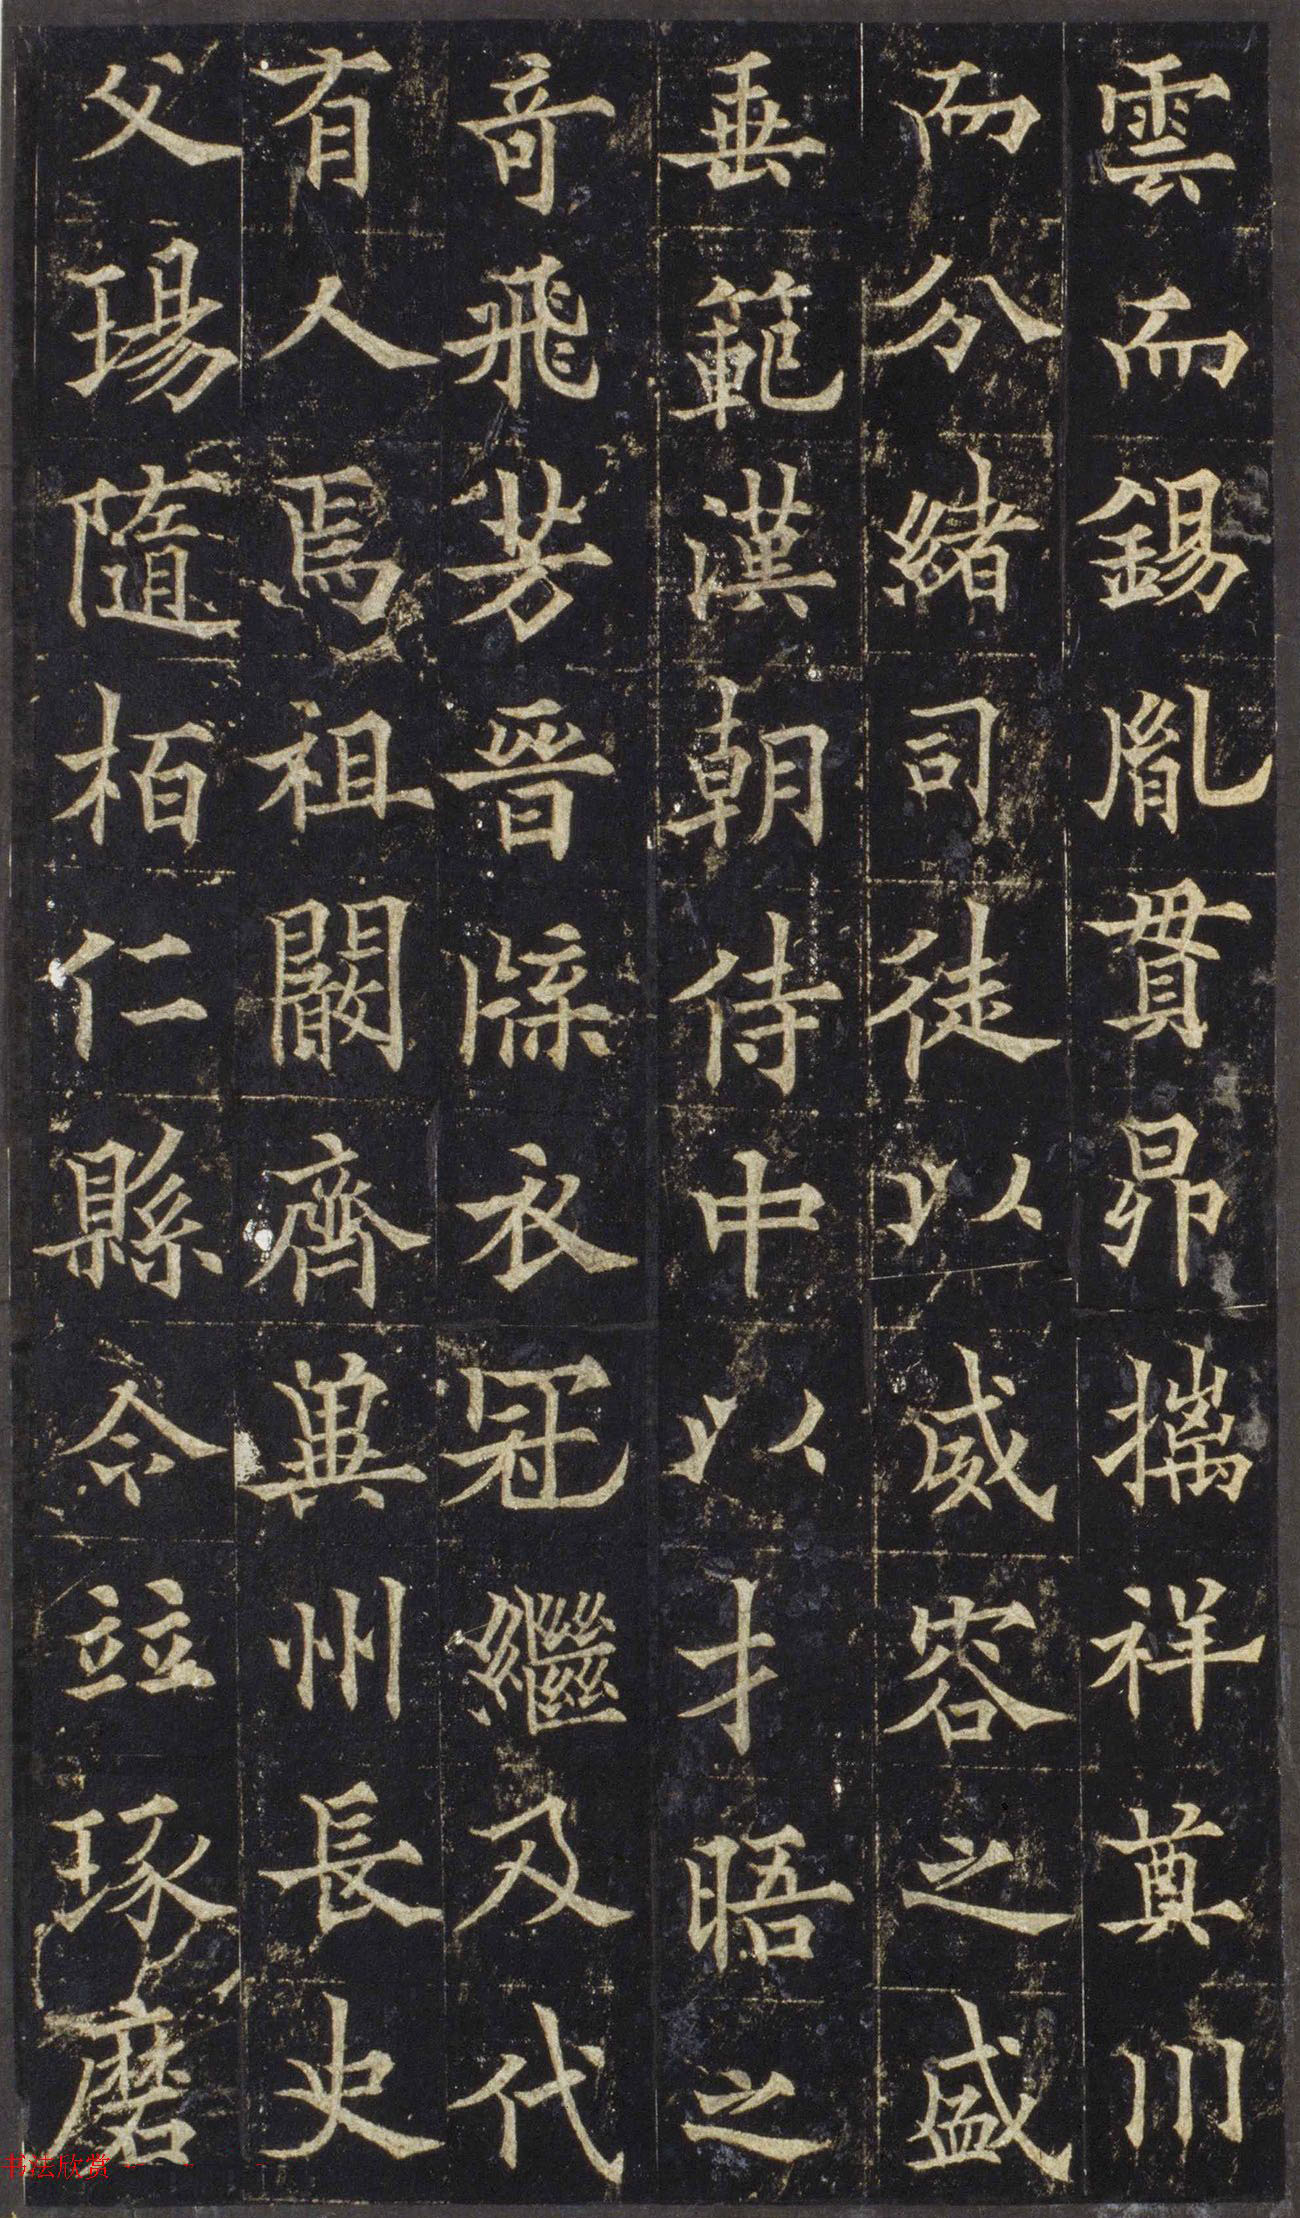 雲而錫胤貫昴攡祥奠川
而分緒司徒以威容之盛
垂範漢朝侍中以才晤之
奇飛芳晉牒衣冠繼及代
有人焉祖闞齊兾州長史
父瑒隨栢仁縣令竝琢磨
书法欣赏